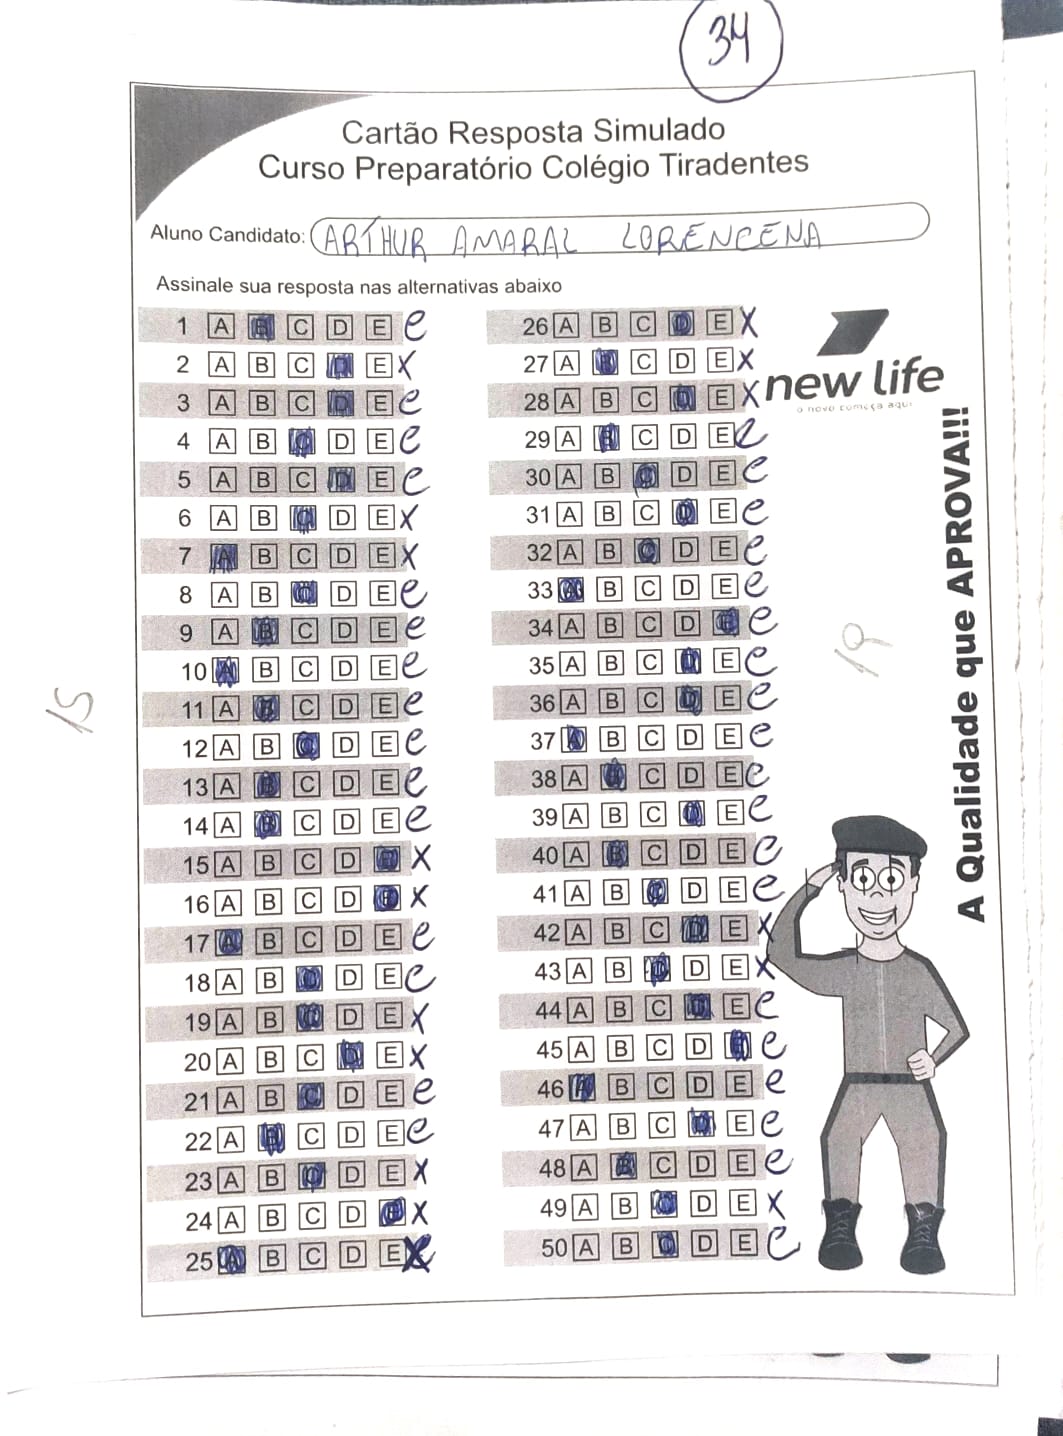 34
Cartão Resposta Simulado
Curso Preparatório Colégio Tiradentes
Aluno Candidato: ARTHUR AMARAL LORENCENA
Assinale sua resposta nas alternativas abaixo
1 A B C D E e
2 A B C D E X
3 A B C D E e
4 A B C D E e
5 A B C D E e
6 A B C D E X
7 A B C D E X
8 A B C D E e
9 A B C D E e
10 A B C D E e
11 A B C D E e
12 A B C D E e
13 A B C D E e
14 A B C D E e
15 A B C D E X
16 A B C D E X
17 A B C D E e
18 A B C D E e
19 A B C D E X
20 A B C D E X
21 A B C D E e
22 A B C D E e
23 A B C D E X
24 A B C D E X
25 A B C D E X
15
26 A B C D E X
27 A B C D E X
28 A B C D E X
29 A B C D E e
30 A B C D E e
31 A B C D E e
32 A B C D E e
33 A B C D E e
34 A B C D E e
35 A B C D E e
36 A B C D E e
37 A B C D E e
38 A B C D E e
39 A B C D E e
40 A B C D E e
41 A B C D E e
42 A B C D E X
43 A B C D E X
44 A B C D E e
45 A B C D E e
46 A B C D E e
47 A B C D E e
48 A B C D E e
49 A B C D E X
50 A B C D E e
19
new life
o novo começa aqui
A Qualidade que APROVA!!!